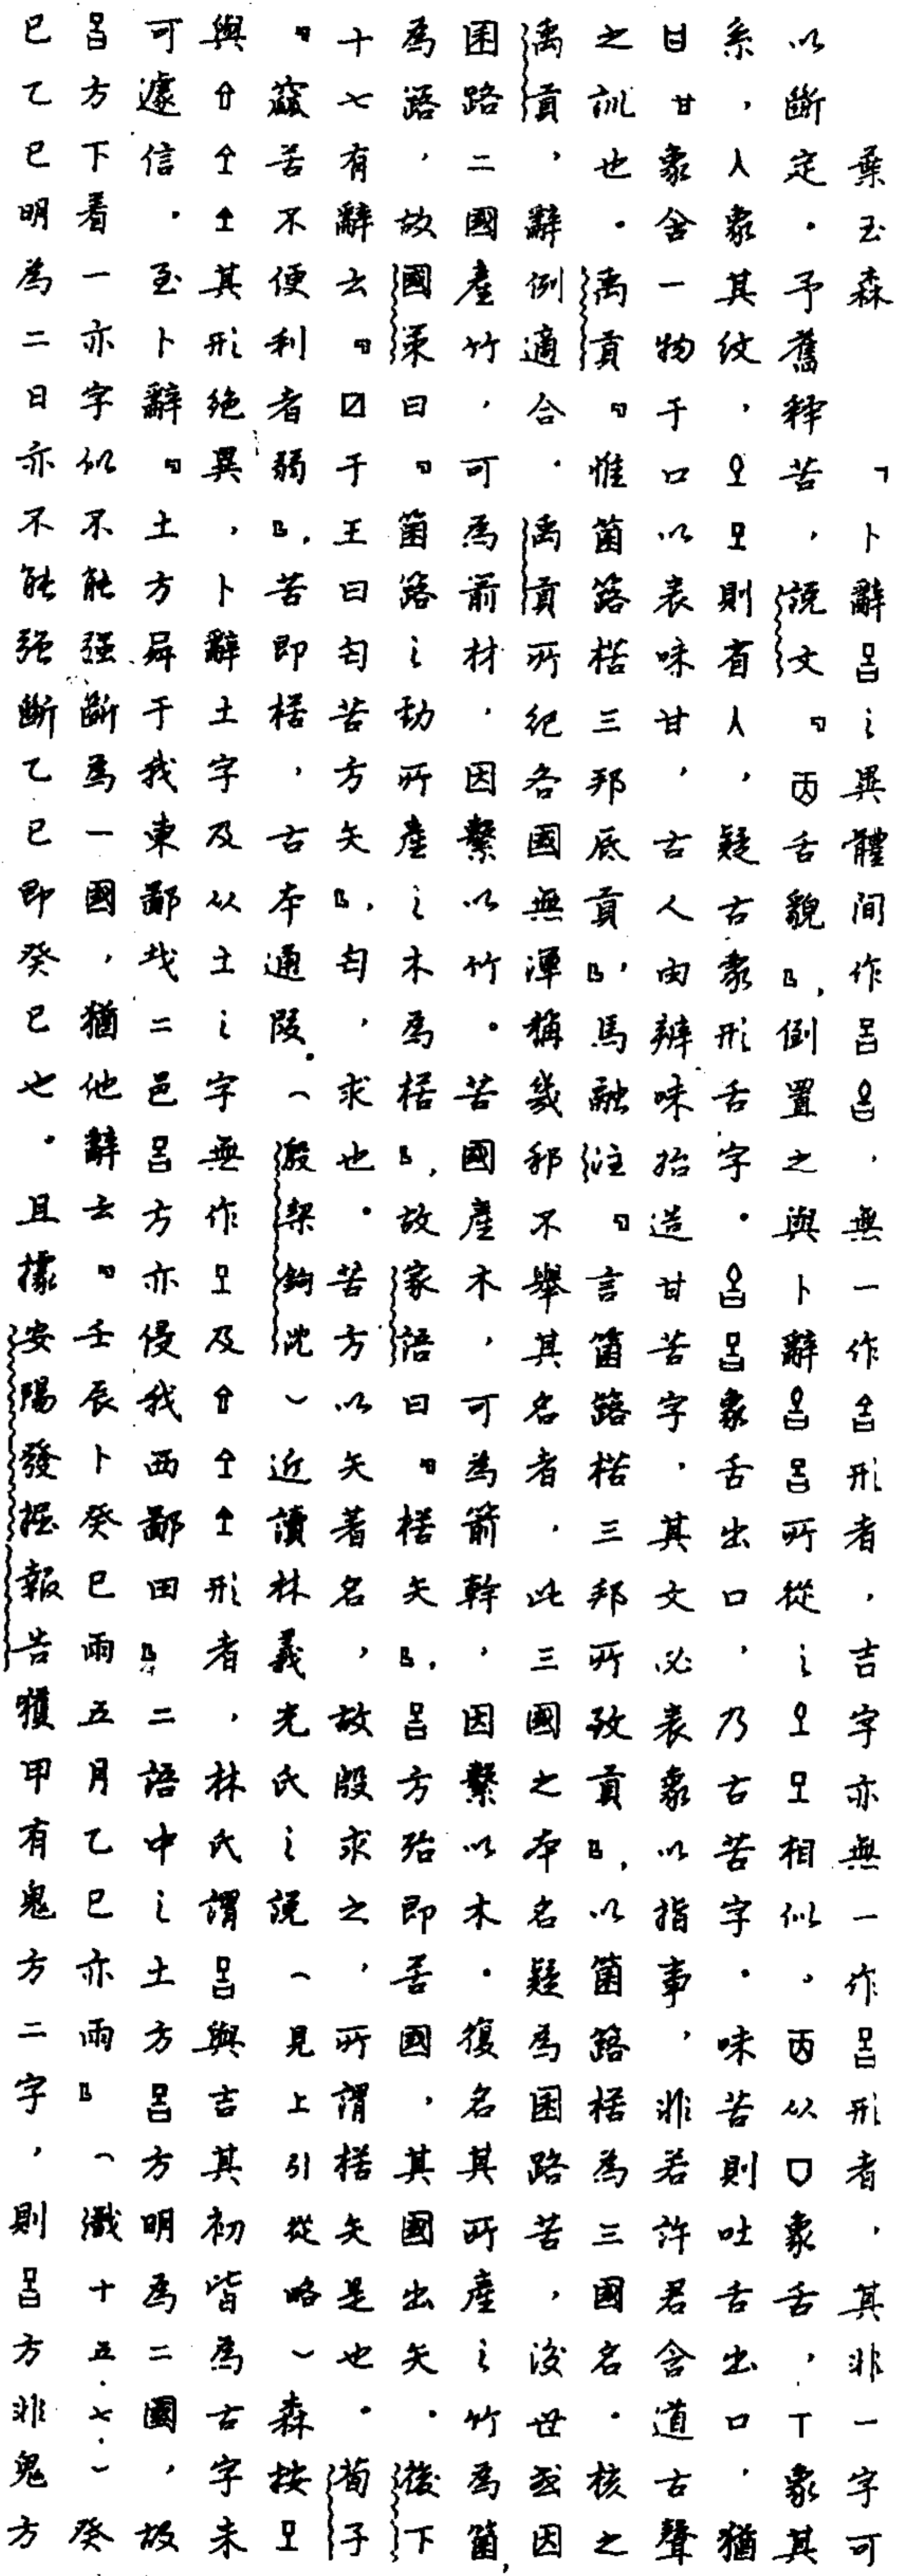 葉玉森　「卜辭𠮷之異體間作𠮷𠮷，無一作𠮷形者，吉字亦無一作𠮷形者，其非一字可
以斷定。予舊釋苦，說文『㐁舌貌』，倒置之與卜辭所從之相似。㐁从口象舌，丅象其
系，人象其紋，則有人，疑古象形舌字。象舌出口，乃古苦字。味苦則吐舌出口，猶
甘象含一物于口以表味甘，古人由辨味抬造甘苦字，其文必表象以指事，非若許君含道古聲
之訓也。禹貢『惟箘簵楛三邦底貢』，馬融注『言箘簵楛三邦所致貢』，以箘簵楛為三國名。核之
禹貢，辭例適合。禹貢所紀各國無渾稱幾邦不舉其名者，此三國之本名疑為困路苦，後世或因
困路二國產竹，可為箭材，因繫以竹。苦國產木，可為箭幹，因繫以木。復名其所產之竹為箘，
為簵，故國策曰『箘簵之勁所產之木為楛』，故家語曰『楛矢』，方殆即苦國，其國出矢。後下
十七有辭云『囗于王曰匄苦方矢』，匄，求也。苦方以矢著名，故殷求之，所謂楛矢是也。荀子
『竊苦不便利者弱』，苦即楛，古本通叚。（殷契鉤沈）近讀林義光氏之說（見上引從略）森按
與其形絕異，卜辭土字及从土之字無作及形者，林氏謂與吉其初皆為古字未
可遽信。至卜辭『土方𢍰于我東鄙𢦏二邑方亦侵我西鄙田』二語中之土方方明為二國，故
方下着一亦字似不能强斷為一國，猶他辭云『壬辰卜癸巳雨五月乙巳亦雨』（鐵十五·七·）癸
巳乙巳明為二日亦不能强斷乙巳即癸巳也。且據安陽發掘報告獲甲有鬼方二字，則方非鬼方